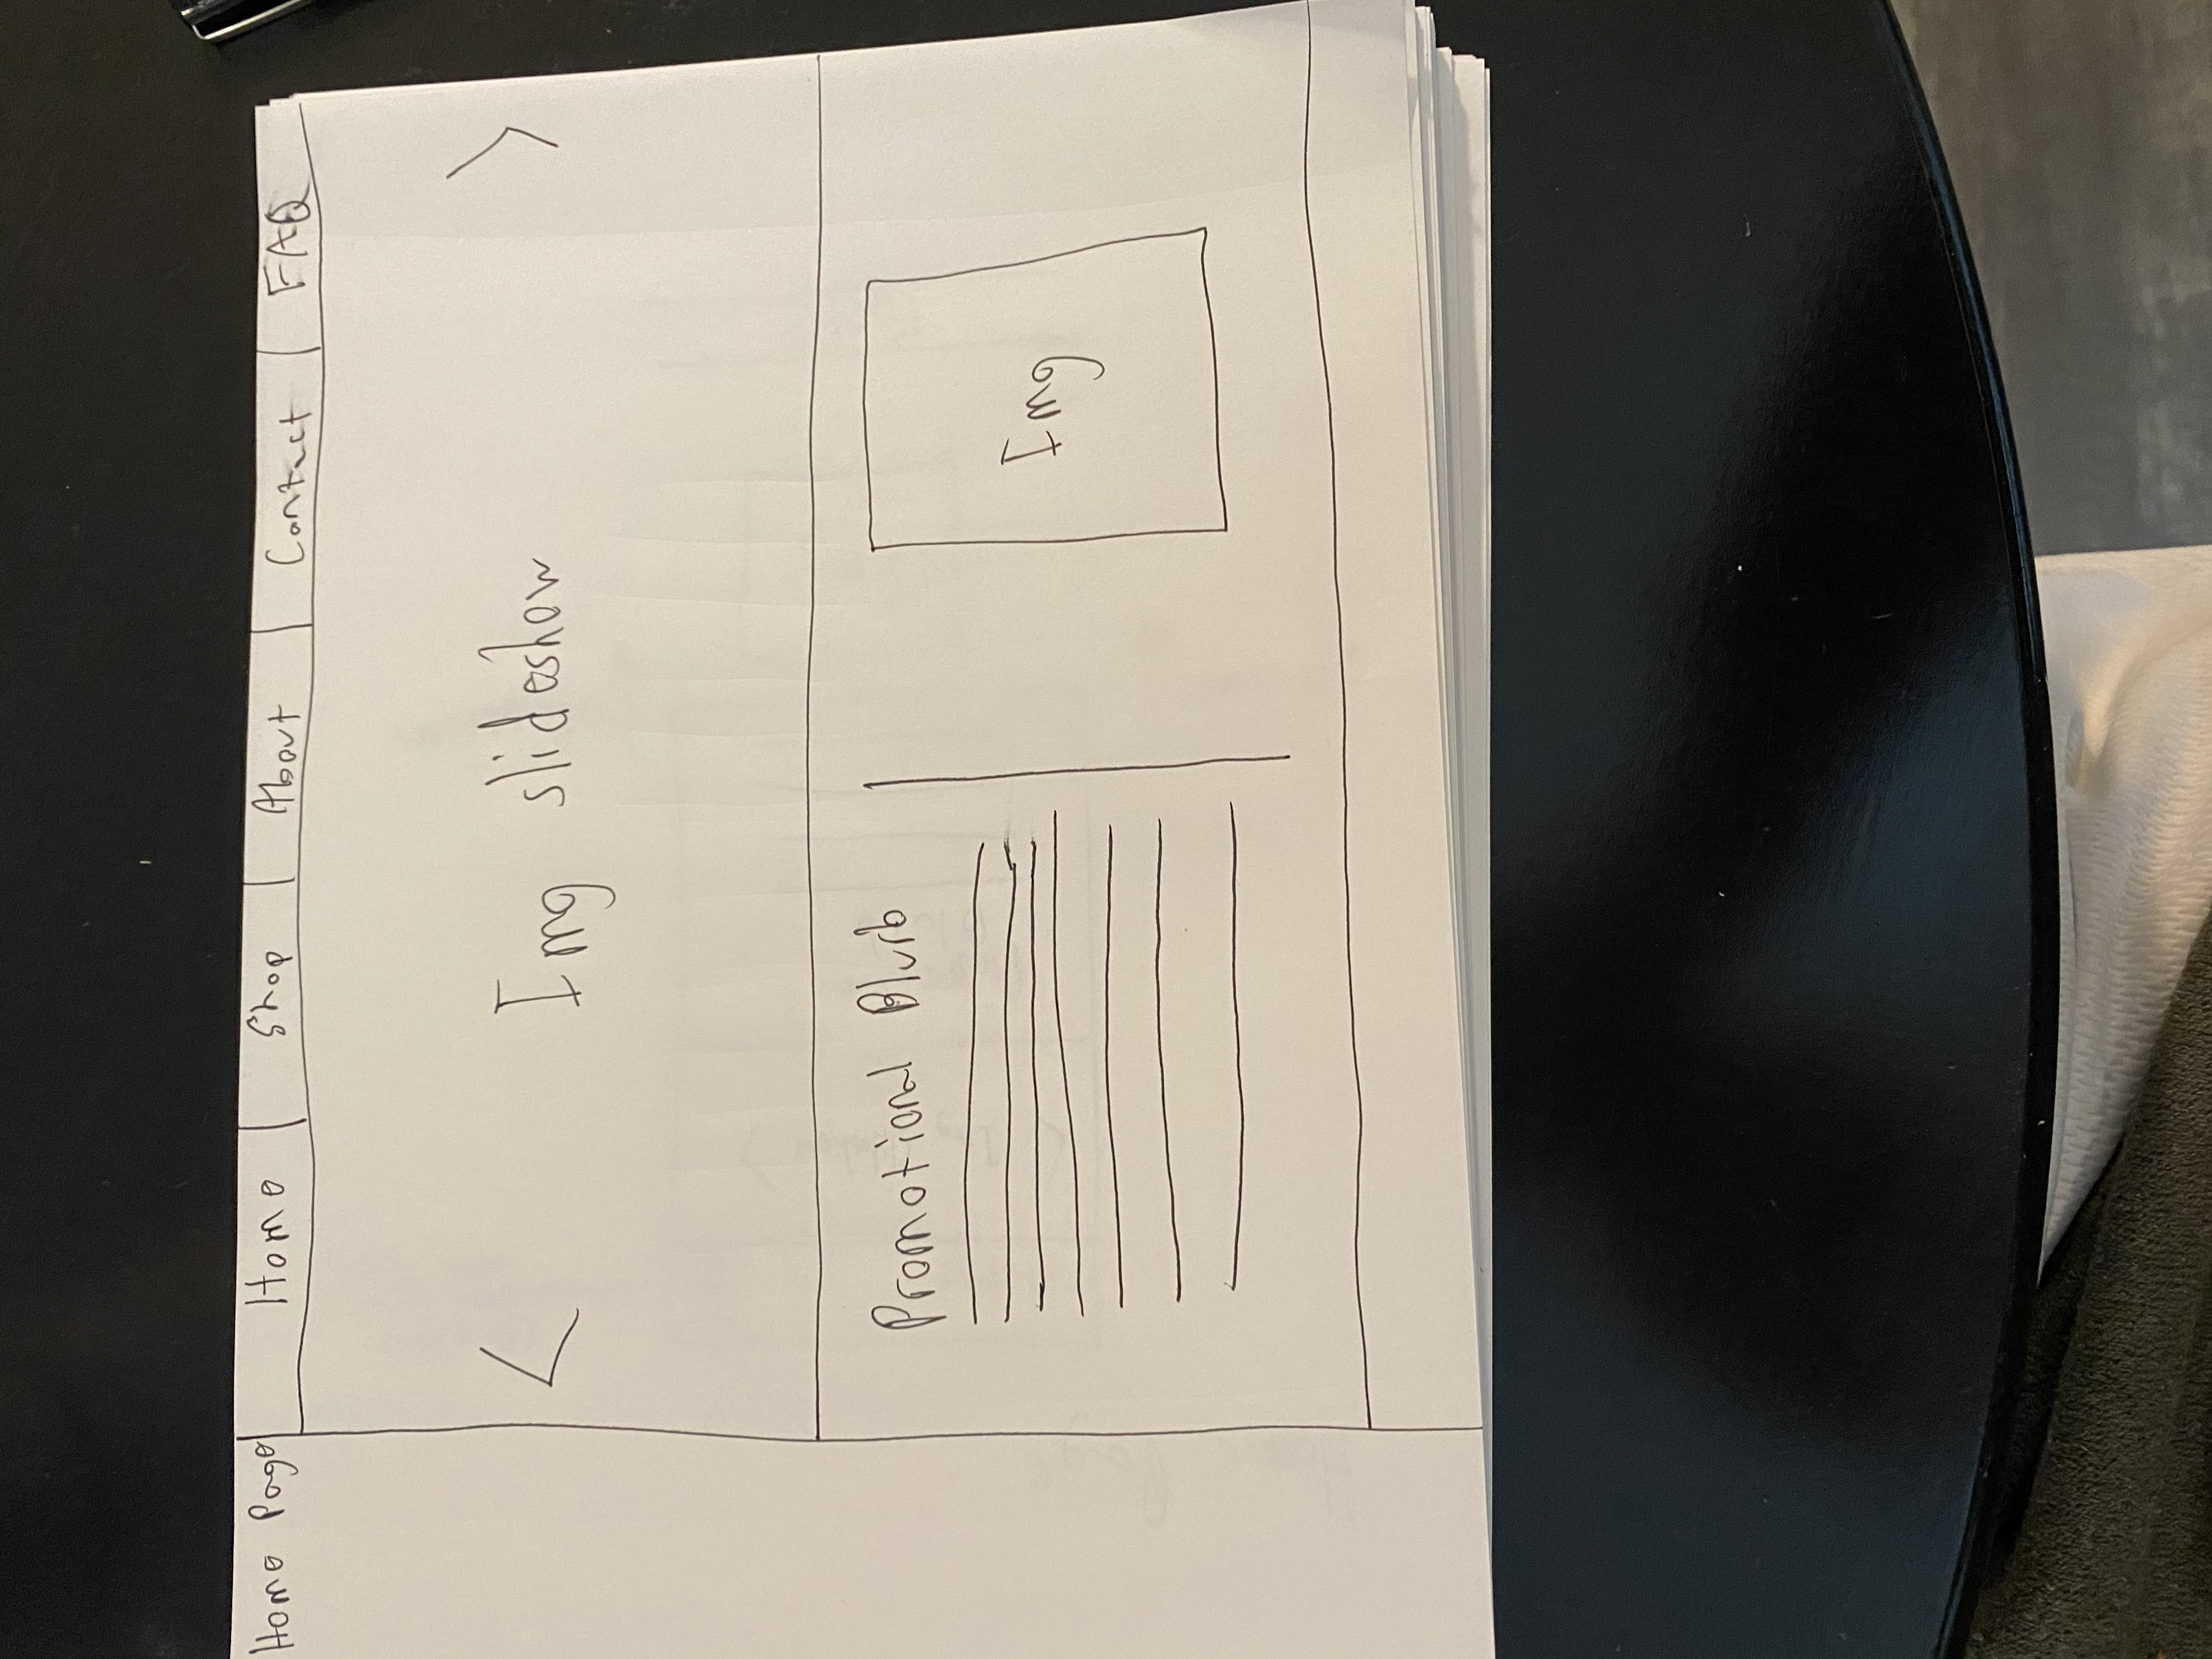 Home Page
Home Shop About Contact FAQ
< Img slideshow >
Promotional Blurb
Img